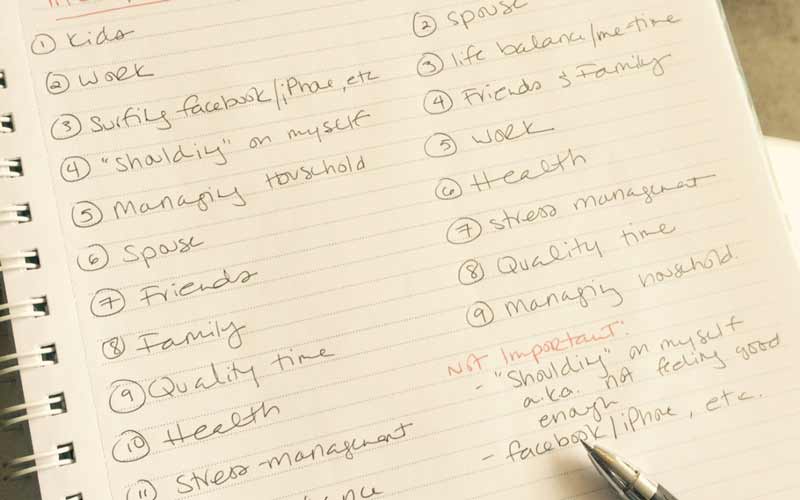 ① Kids
② Work
③ Surfing facebook/iPhone, etc
④ "Shoulding" on myself
⑤ Managing Household
⑥ Spouse
⑦ Friends
⑧ Family
⑨ Quality time
⑩ Health
⑪ Stress-management
② Spouse
③ life balance/me-time
④ Friends & Family
⑤ Work
⑥ Health
⑦ Stress management
⑧ Quality time
⑨ Managing household.
Not Important:
- "Shoulding" on myself
a.k.a. not feeling good
enough
- facebook/iPhone, etc.